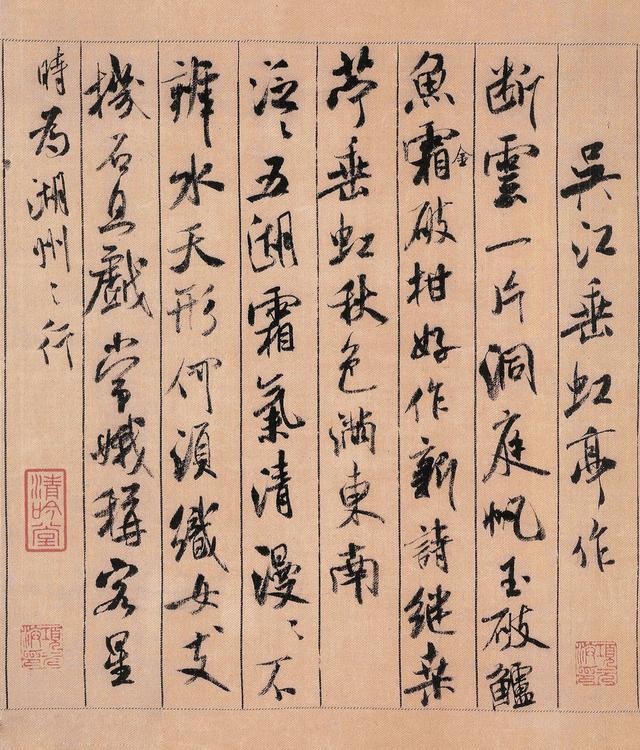 吳江垂虹亭作
断雲一片洞庭帆玉破鱸
魚霜金破柑好作新詩継桑
苧垂虹秋色滿東南
泛〻五湖霜氣清漫〻不
辨水天形何須織女支
機石且戲常娥稱客星
時為湖州之行
清吟堂